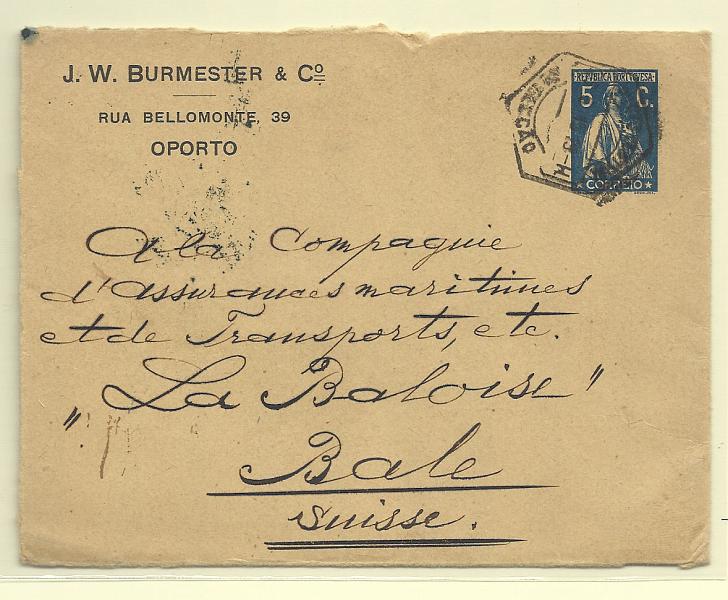 J. W. BURMESTER & Cº
RUA BELLOMONTE, 39
OPORTO
REPUBLICA PORTUGUESA
5 C.
CORREIO
A la Compagnie
d'assurances maritimes
et de Transports, etc.
"La Baloise"
Bale
Suisse.